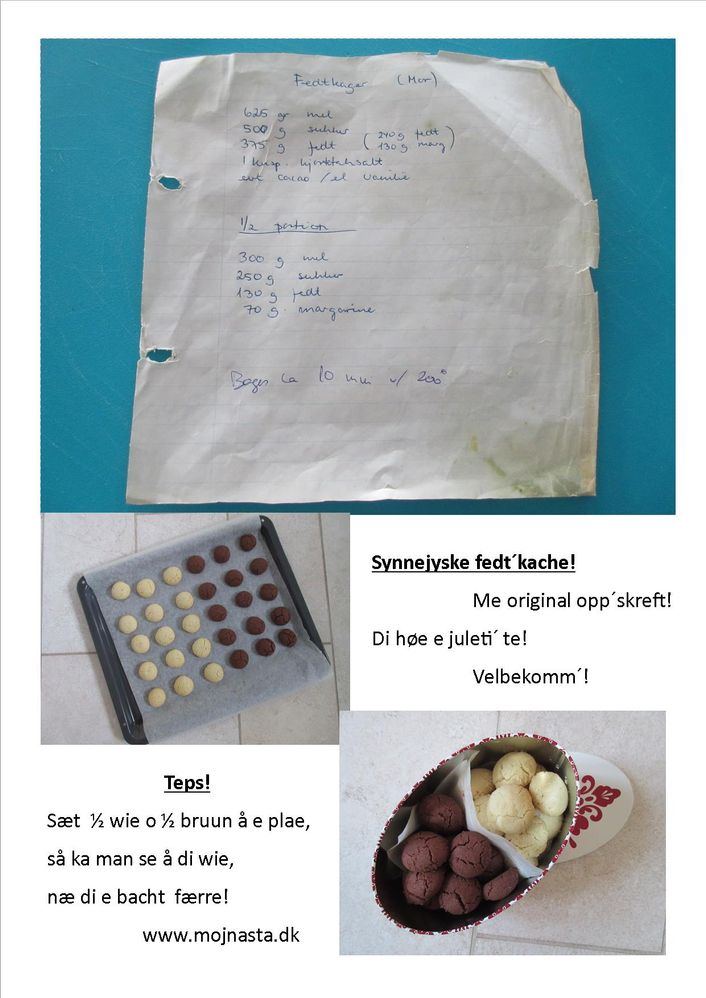 Fedtkager (Mor)
625 gr mel
500 g sukker
375 g fedt (240 g fedt
130 g marg)
1 kusp. hjortetaksalt
evt cacao / el vanilie
1/2 portion
300 g mel
250 g sukker
130 g fedt
70 g. margarine
Bages ca 10 min v/ 200°
Synnejyske fedt´kache!
Me original opp´skreft!
Di høe e juleti´ te!
Velbekomm´!
Teps!
Sæt ½ wie o ½ bruun å e plae,
så ka man se å di wie,
næ di e bacht færre!
www.mojnasta.dk